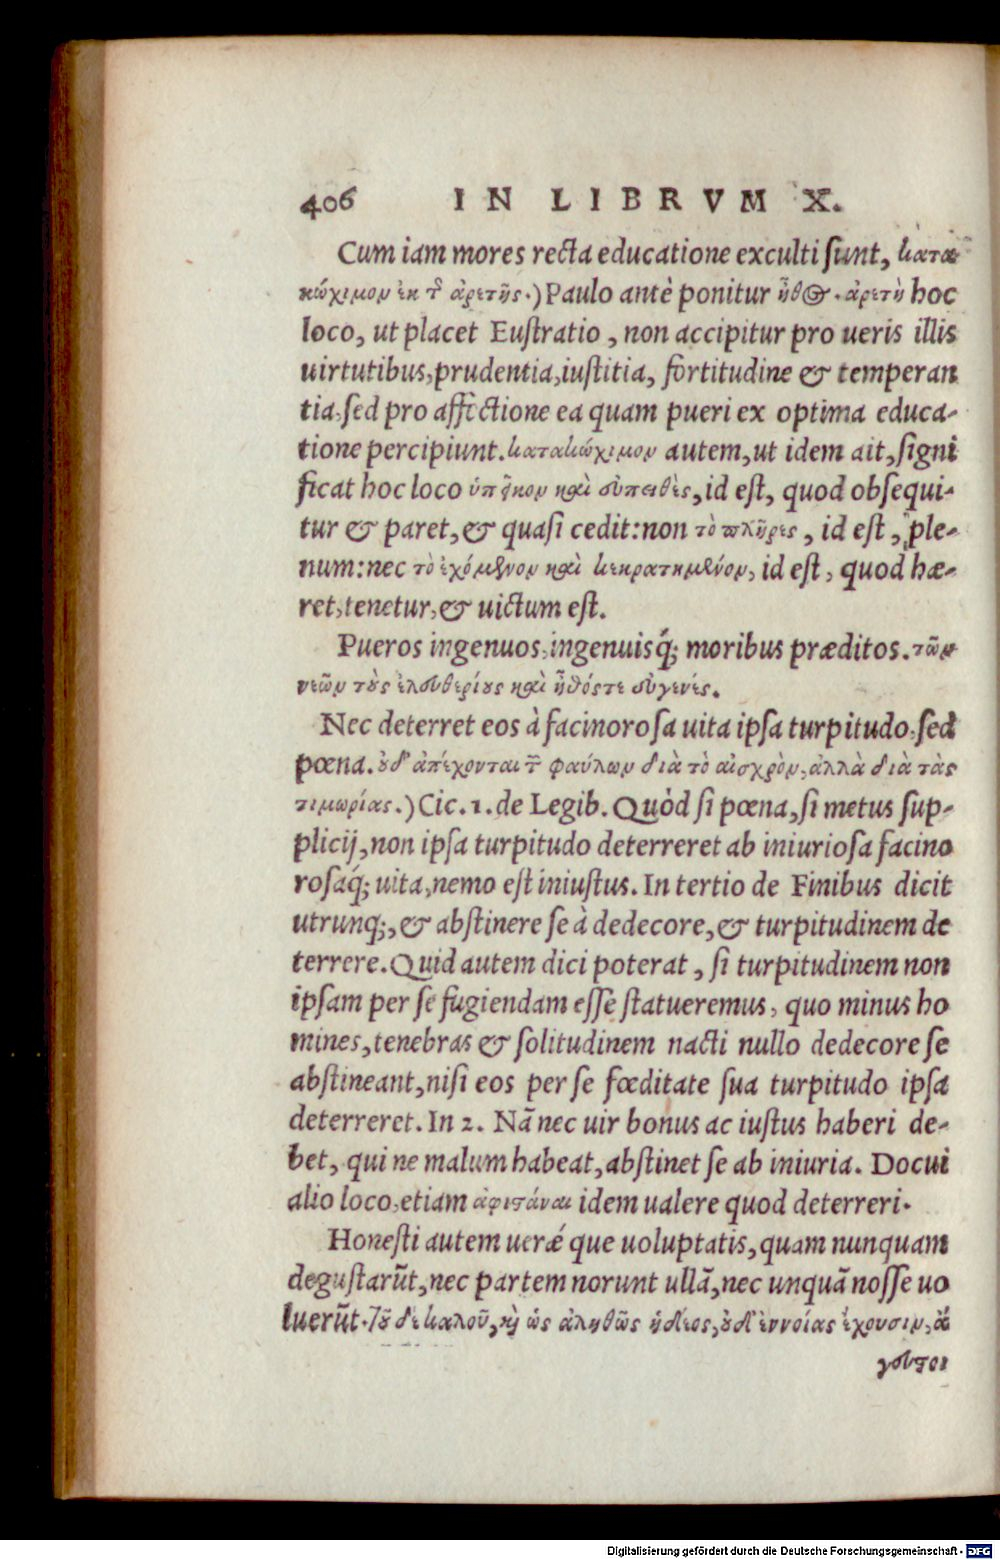 406 IN LIBRVM X.
Cum iam mores recta educatione exculti sunt, κατα
κώχιμον ἐκ τ͂ ἀρετῆς.) Paulo antè ponitur ἦθος. ἀρετὴ hoc
loco, ut placet Eustratio, non accipitur pro ueris illis
uirtutibus, prudentia, iustitia, fortitudine & temperan
tia, sed pro affectione ea quam pueri ex optima educa-
tione percipiunt. κατακώχιμον autem, ut idem ait, signi
ficat hoc loco ὑπῆκον καὶ εὐπειθὲς, id est, quod obsequi-
tur & paret, & quasi cedit: non τὸ πλῆρες, id est, ple-
num: nec τὸ ἐχόμενον καὶ κεκρατημένον, id est, quod hæ-
ret, tenetur, & uictum est.
Pueros ingenuos, ingenuisq́; moribus præditos. τῶν
νεῶν τοὺς ἐλευθερίους καὶ ἦθός τε εὐγενές.
Nec deterret eos à facinorosa uita ipsa turpitudo, sed
pœna. οὐδ' ἀπέχονται τ͂ φαύλων διὰ τὸ αἰσχρὸν, ἀλλὰ διὰ τὰς
τιμωρίας.) Cic. 1. de Legib. Quòd si pœna, si metus sup-
plicij, non ipsa turpitudo deterreret ab iniuriosa facino
rosaq́; uita, nemo est iniustus. In tertio de Finibus dicit
utrunq;, & abstinere se à dedecore, & turpitudinem de
terrere. Quid autem dici poterat, si turpitudinem non
ipsam per se fugiendam esse statueremus, quo minus ho
mines, tenebras & solitudinem nacti nullo dedecore se
abstineant, nisi eos per se fœditate sua turpitudo ipsa
deterreret. In 2. Nã nec uir bonus ac iustus haberi de-
bet, qui ne malum habeat, abstinet se ab iniuria. Docui
alio loco, etiam ἀφιστάναι idem ualere quod deterreri.
Honesti autem uerǽ que uoluptatis, quam nunquam
degustarũt, nec partem norunt ullã, nec unquã nosse uo
luerũt. τοῦ δὲ καλοῦ, καὶ ὡς ἀληθῶς ἡδέος, οὐδ' ἐννοίας ἔχουσιν, ἄ
γευστοι
Digitalisierung gefördert durch die Deutsche Forschungsgemeinschaft - DFG